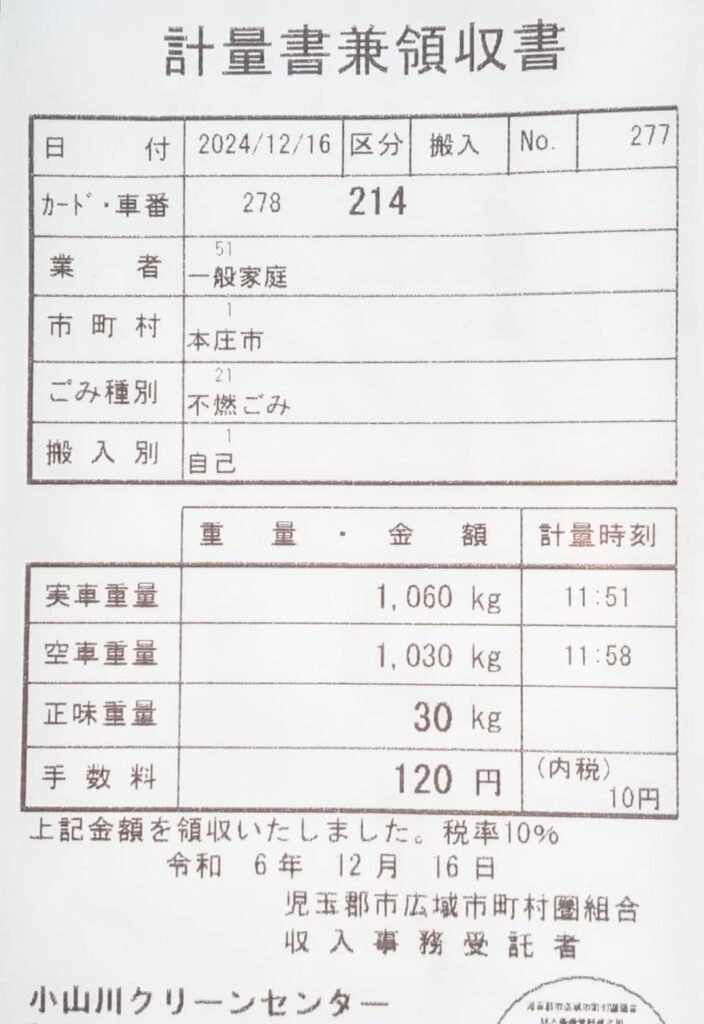 計量書兼領収書
日付 2024/12/16 区分 搬入 No. 277
カード・車番 278 214
業者 51 一般家庭
市町村 1 本庄市
ごみ種別 21 不燃ごみ
搬入別 1 自己
重量・金額 計量時刻
実車重量 1,060 kg 11:51
空車重量 1,030 kg 11:58
正味重量 30 kg
手数料 120 円 (内税) 10円
上記金額を領収いたしました。税率10%
令和 6年 12月 16日
児玉郡市広域市町村圏組合
収入事務受託者
小山川クリーンセンター